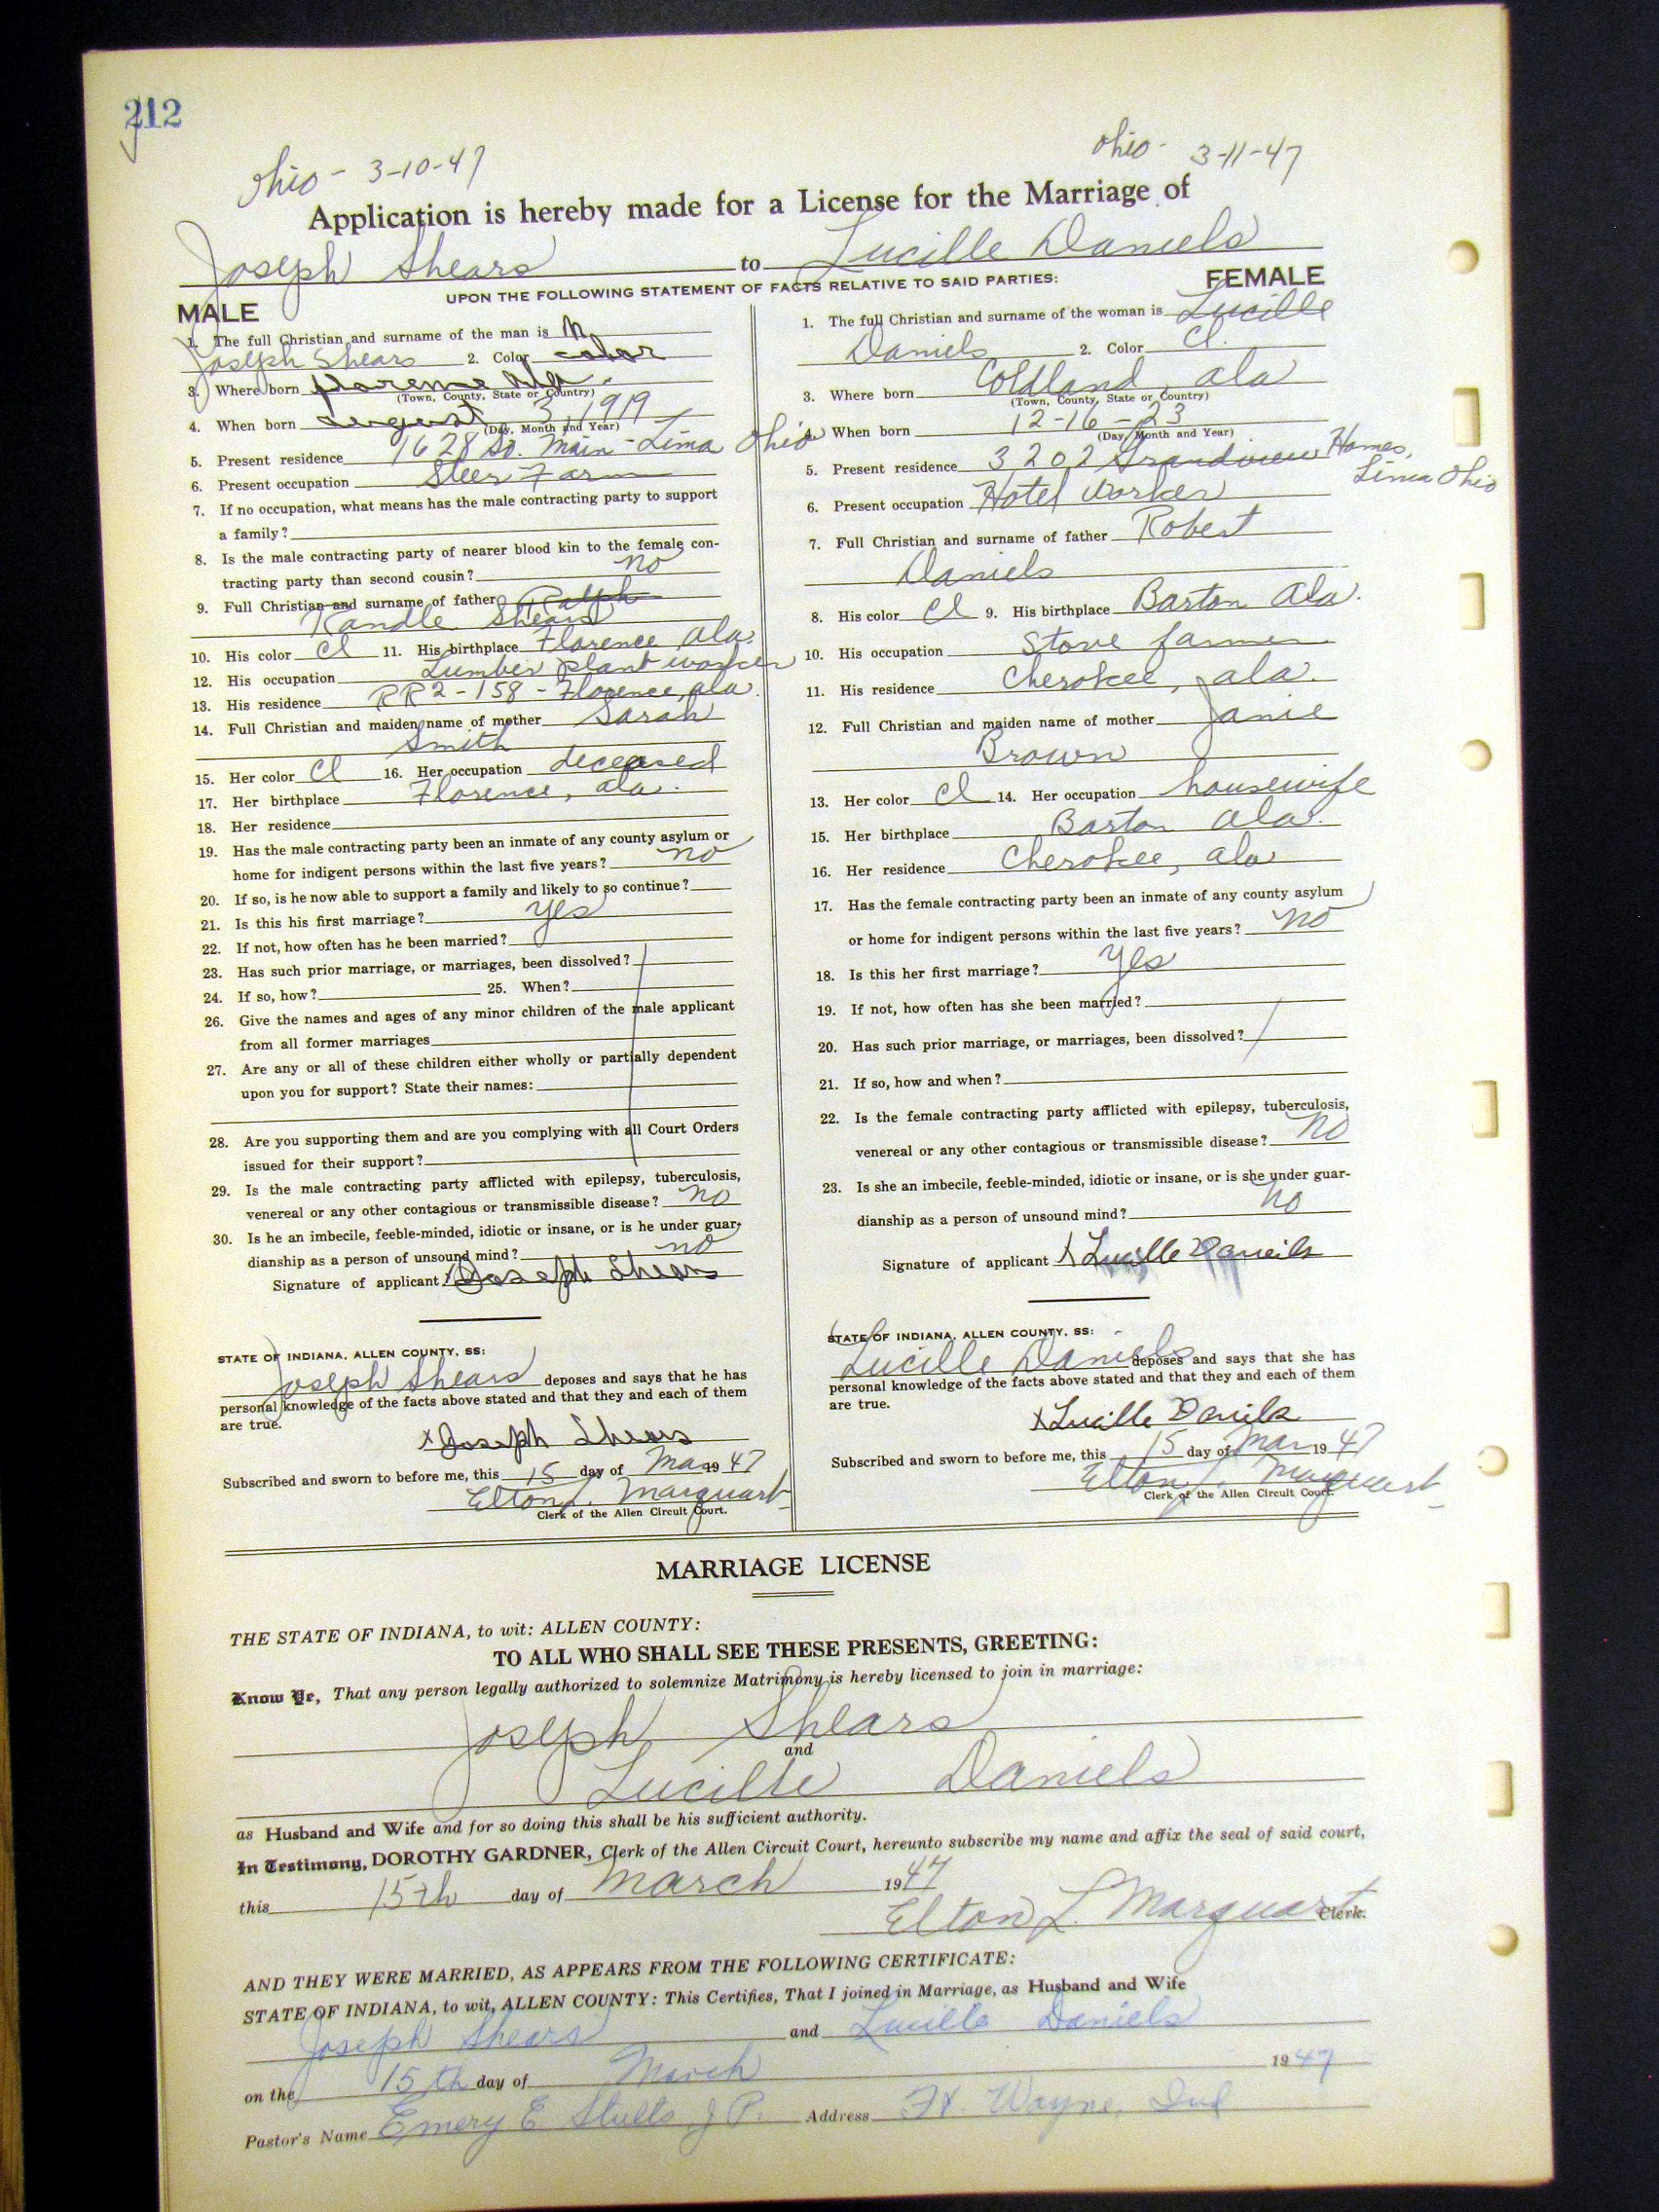 212
Ohio - 3-10-47
Ohio - 3-11-47
Application is hereby made for a License for the Marriage of
Joseph Shears to Lucille Daniels
UPON THE FOLLOWING STATEMENT OF FACTS RELATIVE TO SAID PARTIES:
MALE
1. The full Christian and surname of the man is
Joseph Shears 2. Color color
3. Where born Florence Ala.
(Town, County, State or Country)
4. When born August 3, 1919
(Day, Month and Year)
5. Present residence 1628 So. Main - Lima Ohio
6. Present occupation Steer Farm
7. If no occupation, what means has the male contracting party to support
a family?
8. Is the male contracting party of nearer blood kin to the female con-
tracting party than second cousin? no
9. Full Christian and surname of father Ralph
Randle Shears
10. His color Cl 11. His birthplace Florence, Ala.
12. His occupation Lumber plant worker
13. His residence RR 2 - 158 - Florence, Ala.
14. Full Christian and maiden name of mother Sarah
Smith
15. Her color Cl 16. Her occupation deceased
17. Her birthplace Florence, Ala.
18. Her residence
19. Has the male contracting party been an inmate of any county asylum or
home for indigent persons within the last five years? no
20. If so, is he now able to support a family and likely to so continue?
21. Is this his first marriage? yes
22. If not, how often has he been married?
23. Has such prior marriage, or marriages, been dissolved?
24. If so, how? 25. When?
26. Give the names and ages of any minor children of the male applicant
from all former marriages
27. Are any or all of these children either wholly or partially dependent
upon you for support? State their names:
28. Are you supporting them and are you complying with all Court Orders
issued for their support?
29. Is the male contracting party afflicted with epilepsy, tuberculosis,
venereal or any other contagious or transmissible disease? no
30. Is he an imbecile, feeble-minded, idiotic or insane, or is he under guar-
dianship as a person of unsound mind? no
Signature of applicant Joseph Shears
STATE OF INDIANA, ALLEN COUNTY, SS:
Joseph Shears deposes and says that he has
personal knowledge of the facts above stated and that they and each of them
are true.
x Joseph Shears
Subscribed and sworn to before me, this 15 day of Mar 1947
Elton L. Marquart
Clerk of the Allen Circuit Court.
FEMALE
1. The full Christian and surname of the woman is Lucille
Daniels 2. Color Cl.
3. Where born Coldland, Ala
(Town, County, State or Country)
When born 12-16-23
(Day, Month and Year)
5. Present residence 3202 Grandview Homes,
Lima Ohio
6. Present occupation Hotel worker
7. Full Christian and surname of father Robert
Daniels
8. His color Cl 9. His birthplace Barton Ala.
10. His occupation Stove farmer
11. His residence Cherokee, Ala.
12. Full Christian and maiden name of mother Janie
Brown
13. Her color Cl 14. Her occupation housewife
15. Her birthplace Barton Ala.
16. Her residence Cherokee, Ala
17. Has the female contracting party been an inmate of any county asylum
or home for indigent persons within the last five years? no
18. Is this her first marriage? yes
19. If not, how often has she been married?
20. Has such prior marriage, or marriages, been dissolved?
21. If so, how and when?
22. Is the female contracting party afflicted with epilepsy, tuberculosis,
venereal or any other contagious or transmissible disease? no
23. Is she an imbecile, feeble-minded, idiotic or insane, or is she under guar-
dianship as a person of unsound mind? no
Signature of applicant x Lucille Daneils
STATE OF INDIANA, ALLEN COUNTY, SS:
Lucille Daniels deposes and says that she has
personal knowledge of the facts above stated and that they and each of them
are true.
x Lucille Daniels
Subscribed and sworn to before me, this 15 day of Mar 1947
Elton L. Marquart
Clerk of the Allen Circuit Court.
MARRIAGE LICENSE
THE STATE OF INDIANA, to wit: ALLEN COUNTY:
TO ALL WHO SHALL SEE THESE PRESENTS, GREETING:
Know Ye, That any person legally authorized to solemnize Matrimony is hereby licensed to join in marriage:
Joseph Shears
and
Lucille Daniels
as Husband and Wife and for so doing this shall be his sufficient authority.
In Testimony, DOROTHY GARDNER, Clerk of the Allen Circuit Court, hereunto subscribe my name and affix the seal of said court,
this 15th day of March 1947
Elton L. Marquart Clerk.
AND THEY WERE MARRIED, AS APPEARS FROM THE FOLLOWING CERTIFICATE:
STATE OF INDIANA, to wit, ALLEN COUNTY: This Certifies, That I joined in Marriage, as Husband and Wife
Joseph Shears and Lucille Daniels
on the 15th day of March 1947
Pastor's Name Emery E. Stults J.P. Address Ft. Wayne, Ind